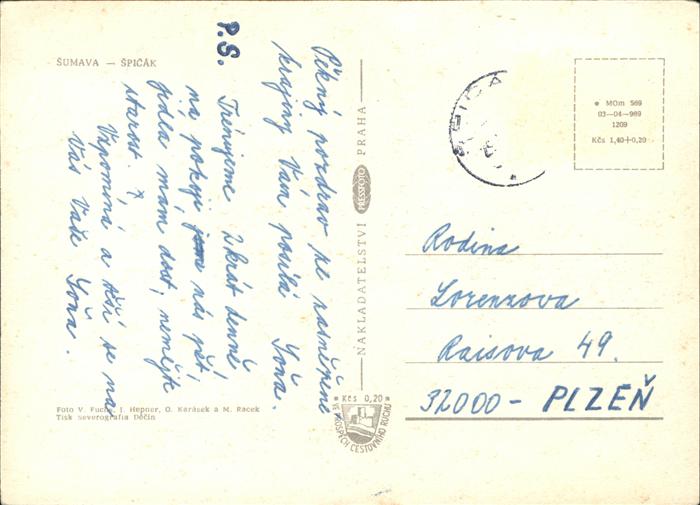 ŠUMAVA — ŠPIČÁK
Pěkný pozdrav ze zasněžené
krajiny Vám posílá Soňa.
P.S. Trénujeme 2krát denně
na pokoji nás pět,
jídla mám dost, nemějte
starost.
Vzpomíná a těší se na
Vás Vaše Soňa.
Foto V. Fuchs, I. Hepner, O. Karásek a M. Racek
Tisk Severografia Děčín
NAKLADATELSTVÍ PRESSFOTO PRAHA
* Kčs 0,20 *
VE PROSPĚCH CESTOVNÍHO RUCHU
* MOm 569
03-04-989
1209
Kčs 1,40+0,20
Rodina
Lorenzova
Raisova 49.
32000 - PLZEŇ